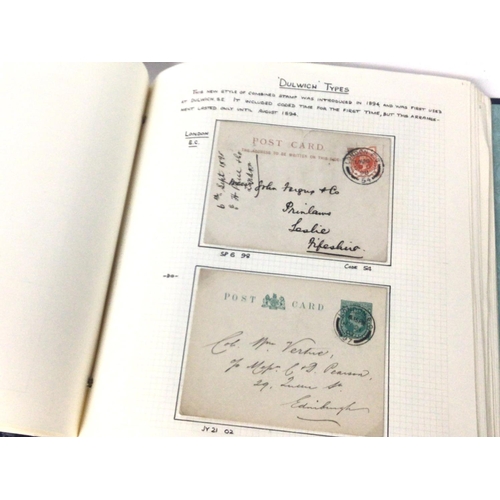 'DULWICH' TYPES
THIS NEW STYLE OF COMBINED STAMP WAS INTRODUCED IN 1894, AND WAS FIRST USED
AT DULWICH S.E. IT INCLUDED CODED TIME FOR THE FIRST TIME, BUT THIS ARRANGE-
MENT LASTED ONLY UNTIL AUGUST 1894.
LONDON
E.C.
POST CARD
THE ADDRESS TO BE WRITTEN ON THIS SIDE.
6th Sept 1898
John Fergus & Co
Prinlaws
Leslie
Fifeshire.
SP 6 98
CODE
-DO-
POST CARD
Col Wm Vertue,
C & D. Pearson
29, Queen St
Edinburgh
JY 21 02